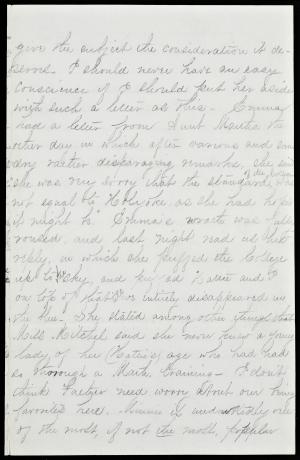 give the subject the consideration it de-
serves. I should never have an easy
conscience if I should put her aside
with such a letter as this. Emma
had a letter from Aunt Martha the
other day in which after various and
very rather disparaging remarks, she said
she was very sorry that the standard of the College was
not equal to Holyoke, as she had hoped
it might be. Emma's wrath was fully
roused, and last night read us her
reply, in which she puffed the College
up to the sky, and Katie and I
on top of that entirely disappeared in
the blue. She stated among other things that
Miss Mitchel said she never knew a young
lady of her (Katie's) age who had had
so thorough a Math. training. I don't
think Father need worry about our being
favorites here. Minnie is undoubtedly one
of the most, if not the most, popular